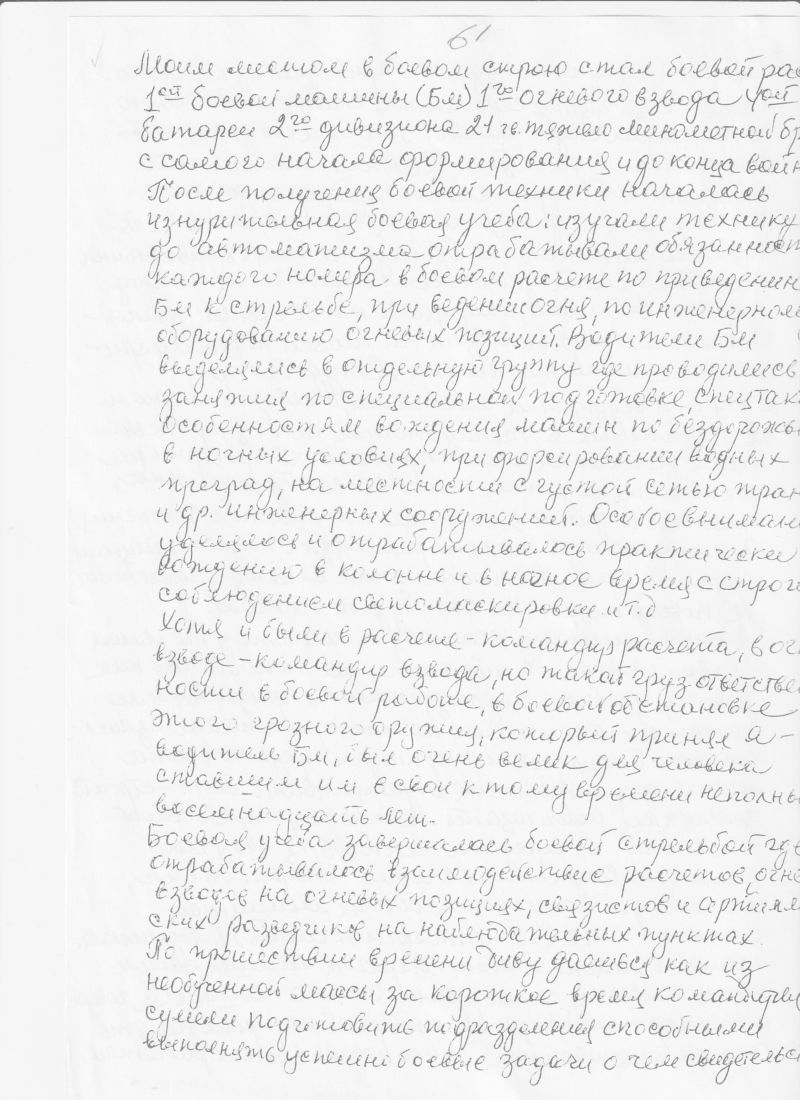 61
Моим местом в боевом строю стал боевой рас
1ой боевой машины (Бм) 1го огневого взвода 4ой
батареи 2го дивизиона 21 гв. тяжело минометной бр
с самого начала формирования и до конца войн
После получения боевой техники началась
изнурительная боевая учеба: изучали технику
до автоматизма отрабатывали обязанност
каждого номера в боевом расчете по приведени
Бм к стрельбе, при ведении огня, по инженерном
оборудованию огневых позиций. Водители Бм
выделялись в отдельную группу где проводились
занятия по специальной подготовке, спецтак
особенностям вождения машин по бездорожь
в ночных условиях, при форсировании водных
преград, на местности с густой сетью тран
и др. инженерных сооружений. Особое вниман
уделялось и отрабатывалось практически
вождению в колонне и в ночное время с строги
соблюдением светомаскировки и т.д
Хотя и были в расчете - командир расчета, в ог
взводе - командир взвода, но такой груз ответстве
ности в боевой работе, в боевой обстановке
этого грозного оружия, который принял я -
водитель Бм, был очень велик для человека
ставшим им в свои к тому времени неполны
восемнадцать лет.
Боевая учеба завершалась боевой стрельбой где
отрабатывалось взаимодействие расчетов, огне
взводов на огневых позициях, связистов и артилл
ских разведчиков на наблюдательных пунктах.
По прошествии времени диву даешься как из
необученной массы за короткое время командиры
сумели подготовить подразделения способными
выполнять успешно боевые задачи о чем свидетельс